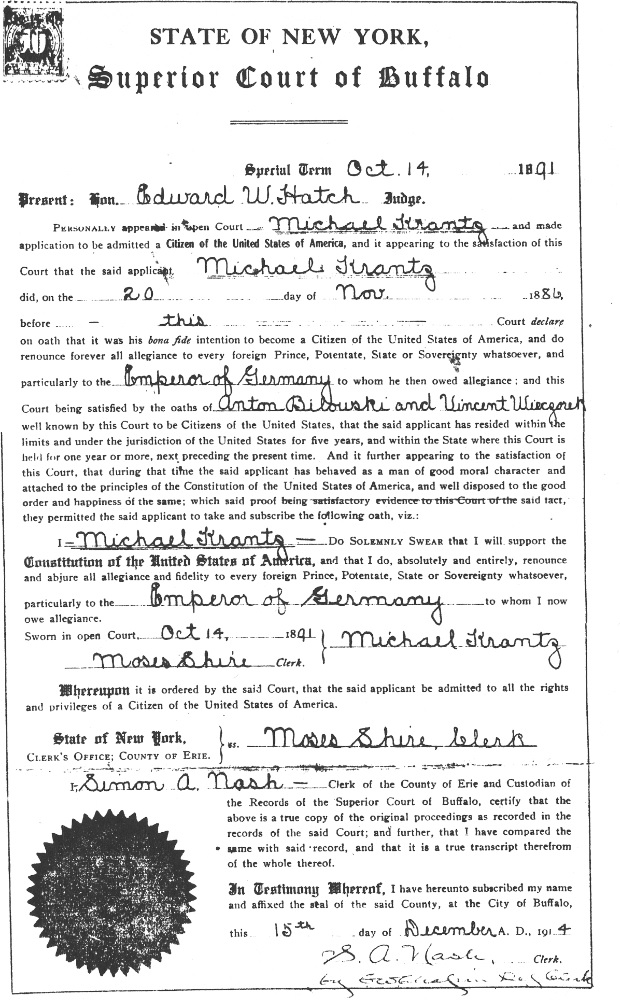 10
STATE OF NEW YORK,
Superior Court of Buffalo
Special Term Oct. 14, 1891
Present: Hon. Edward W. Hatch Judge.
PERSONALLY appeared in Open Court Michael Krantz and made
application to be admitted a Citizen of the United States of America, and it appearing to the satisfaction of this
Court that the said applicant, Michael Krantz
did, on the 20 day of Nov. 1886,
before — this Court declare
on oath that it was his bona fide intention to become a Citizen of the United States of America, and do
renounce forever all allegiance to every foreign Prince, Potentate, State or Sovereignty whatsoever, and
particularly to the Emperor of Germany to whom he then owed allegiance; and this
Court being satisfied by the oaths of Anton Bilowski and Vincent Wieczorek
well known by this Court to be Citizens of the United States, that the said applicant has resided within the
limits and under the jurisdiction of the United States for five years, and within the State where this Court is
held for one year or more, next preceding the present time. And it further appearing to the satisfaction of
this Court, that during that time the said applicant has behaved as a man of good moral character and
attached to the principles of the Constitution of the United States of America, and well disposed to the good
order and happiness of the same; which said proof being satisfactory evidence to this Court of the said fact,
they permitted the said applicant to take and subscribe the following oath, viz.:
I — Michael Krantz — DO SOLEMNLY SWEAR that I will support the
Constitution of the United States of America, and that I do, absolutely and entirely, renounce
and abjure all allegiance and fidelity to every foreign Prince, Potentate, State or Sovereignty whatsoever,
particularly to the Emperor of Germany to whom I now
owe allegiance.
Sworn in open Court, Oct 14, 1891 } Michael Krantz
Moses Shire Clerk.
Whereupon it is ordered by the said Court, that the said applicant be admitted to all the rights
and privileges of a Citizen of the United States of America.
State of New York, } ss. Moses Shire, Clerk
CLERK'S OFFICE; COUNTY OF ERIE.
I, Simon A. Nash — Clerk of the County of Erie and Custodian of
the Records of the Superior Court of Buffalo, certify that the
above is a true copy of the original proceedings as recorded in the
records of the said Court; and further, that I have compared the
same with said record, and that it is a true transcript therefrom
of the whole thereof.
In Testimony Whereof, I have hereunto subscribed my name
and affixed the seal of the said County, at the City of Buffalo,
this 15th day of December A. D., 1914
S. A. Nash, Clerk.
by Dep Clerk